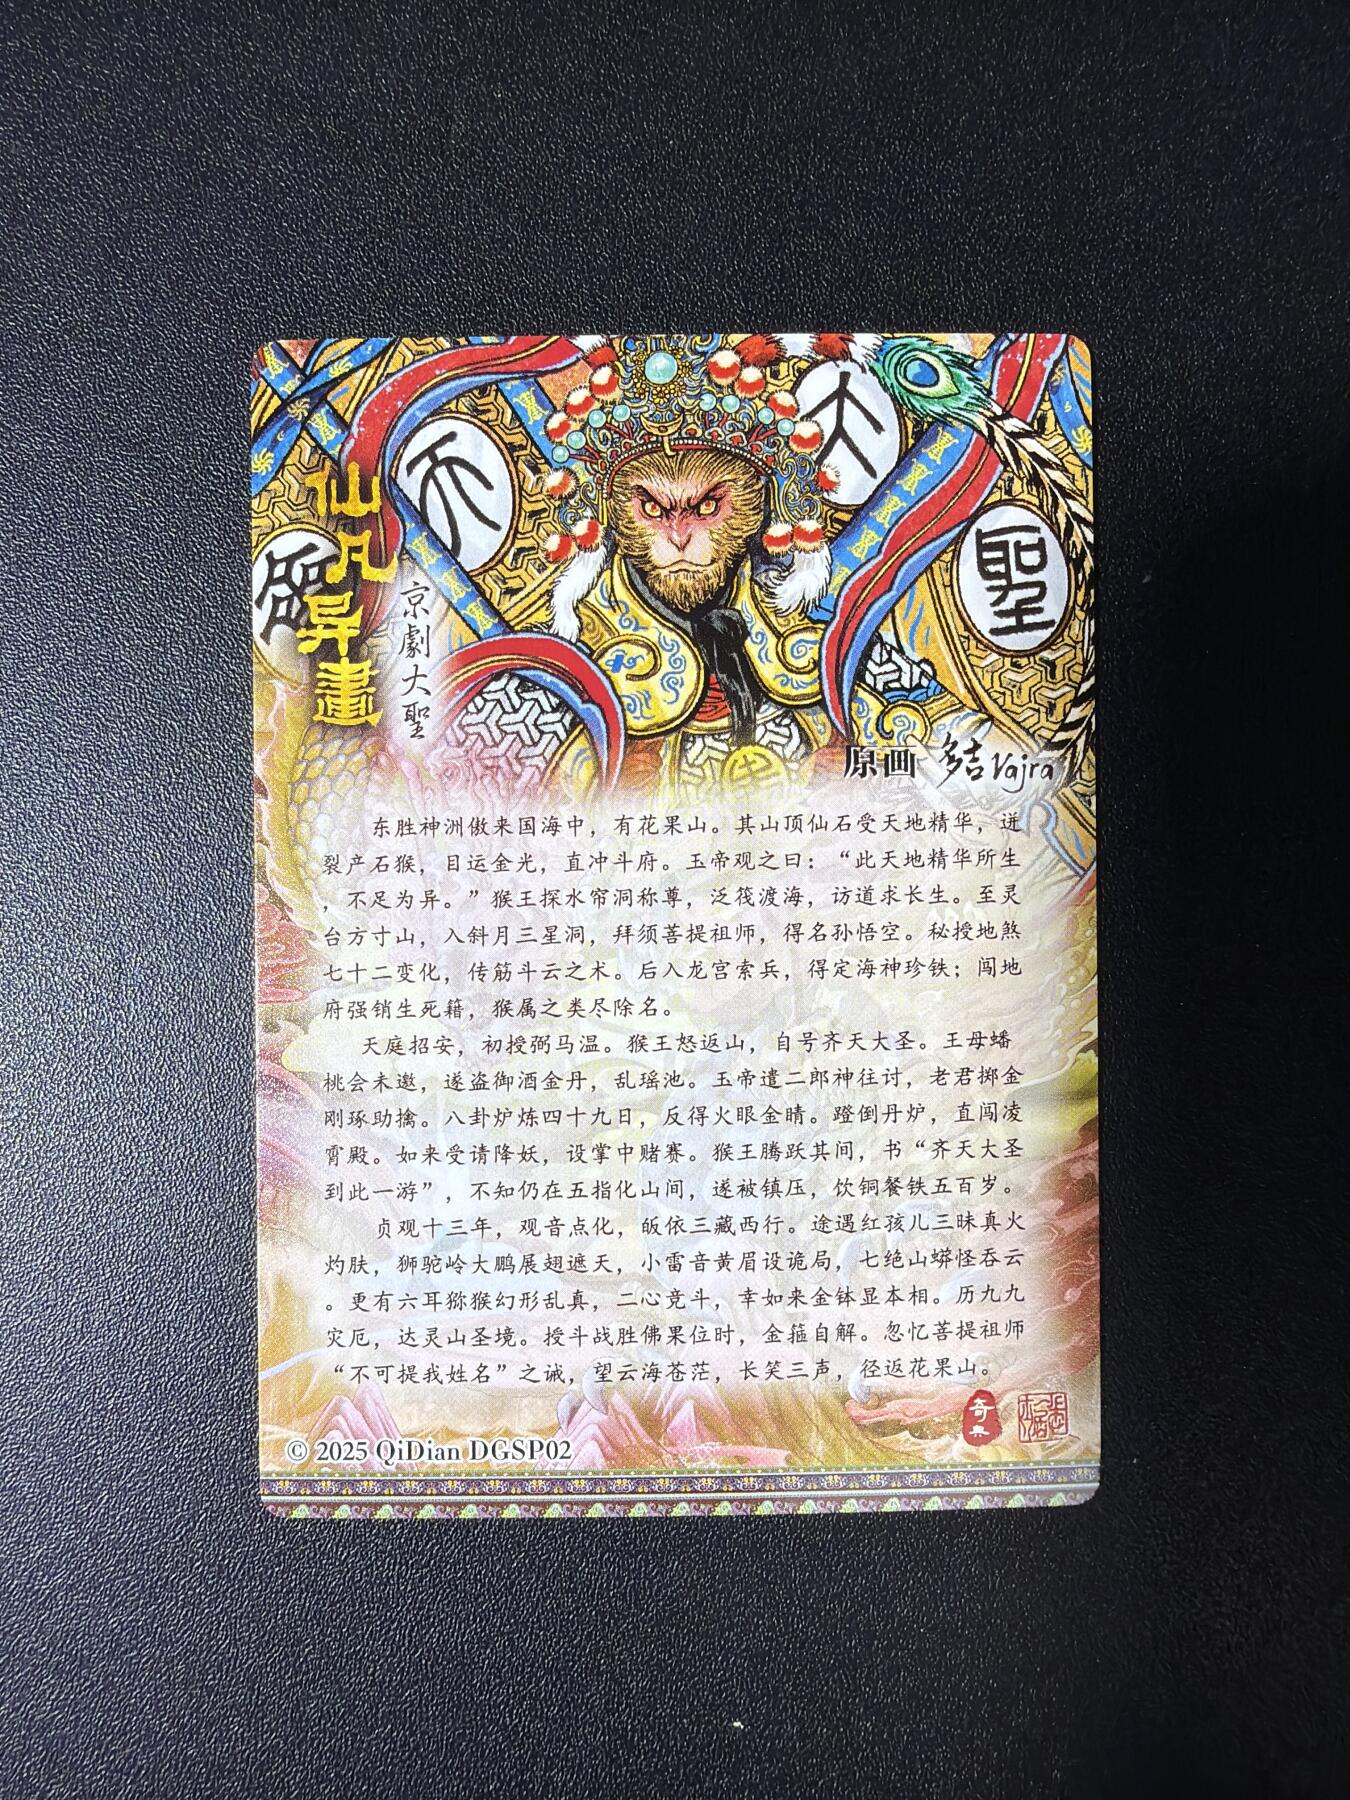 齊
天
大
聖
仙凡异畫
京劇大聖
原画 多吉Vajra
东胜神洲傲来国海中，有花果山。其山顶仙石受天地精华，迸
裂产石猴，目运金光，直冲斗府。玉帝观之曰：“此天地精华所生
，不足为异。”猴王探水帘洞称尊，泛筏渡海，访道求长生。至灵
台方寸山，入斜月三星洞，拜须菩提祖师，得名孙悟空。秘授地煞
七十二变化，传筋斗云之术。后入龙宫索兵，得定海神珍铁；闯地
府强销生死籍，猴属之类尽除名。
天庭招安，初授弼马温。猴王怒返山，自号齐天大圣。王母蟠
桃会未邀，遂盗御酒金丹，乱瑶池。玉帝遣二郎神往讨，老君掷金
刚琢助擒。八卦炉炼四十九日，反得火眼金睛。蹬倒丹炉，直闯凌
霄殿。如来受请降妖，设掌中赌赛。猴王腾跃其间，书“齐天大圣
到此一游”，不知仍在五指化山间，遂被镇压，饮铜餐铁五百岁。
贞观十三年，观音点化，皈依三藏西行。途遇红孩儿三昧真火
灼肤，狮驼岭大鹏展翅遮天，小雷音黄眉设诡局，七绝山蟒怪吞云
。更有六耳猕猴幻形乱真，二心竞斗，幸如来金钵显本相。历九九
灾厄，达灵山圣境。授斗战胜佛果位时，金箍自解。忽忆菩提祖师
“不可提我姓名”之诫，望云海苍茫，长笑三声，径返花果山。
奇典
© 2025 QiDian DGSP02